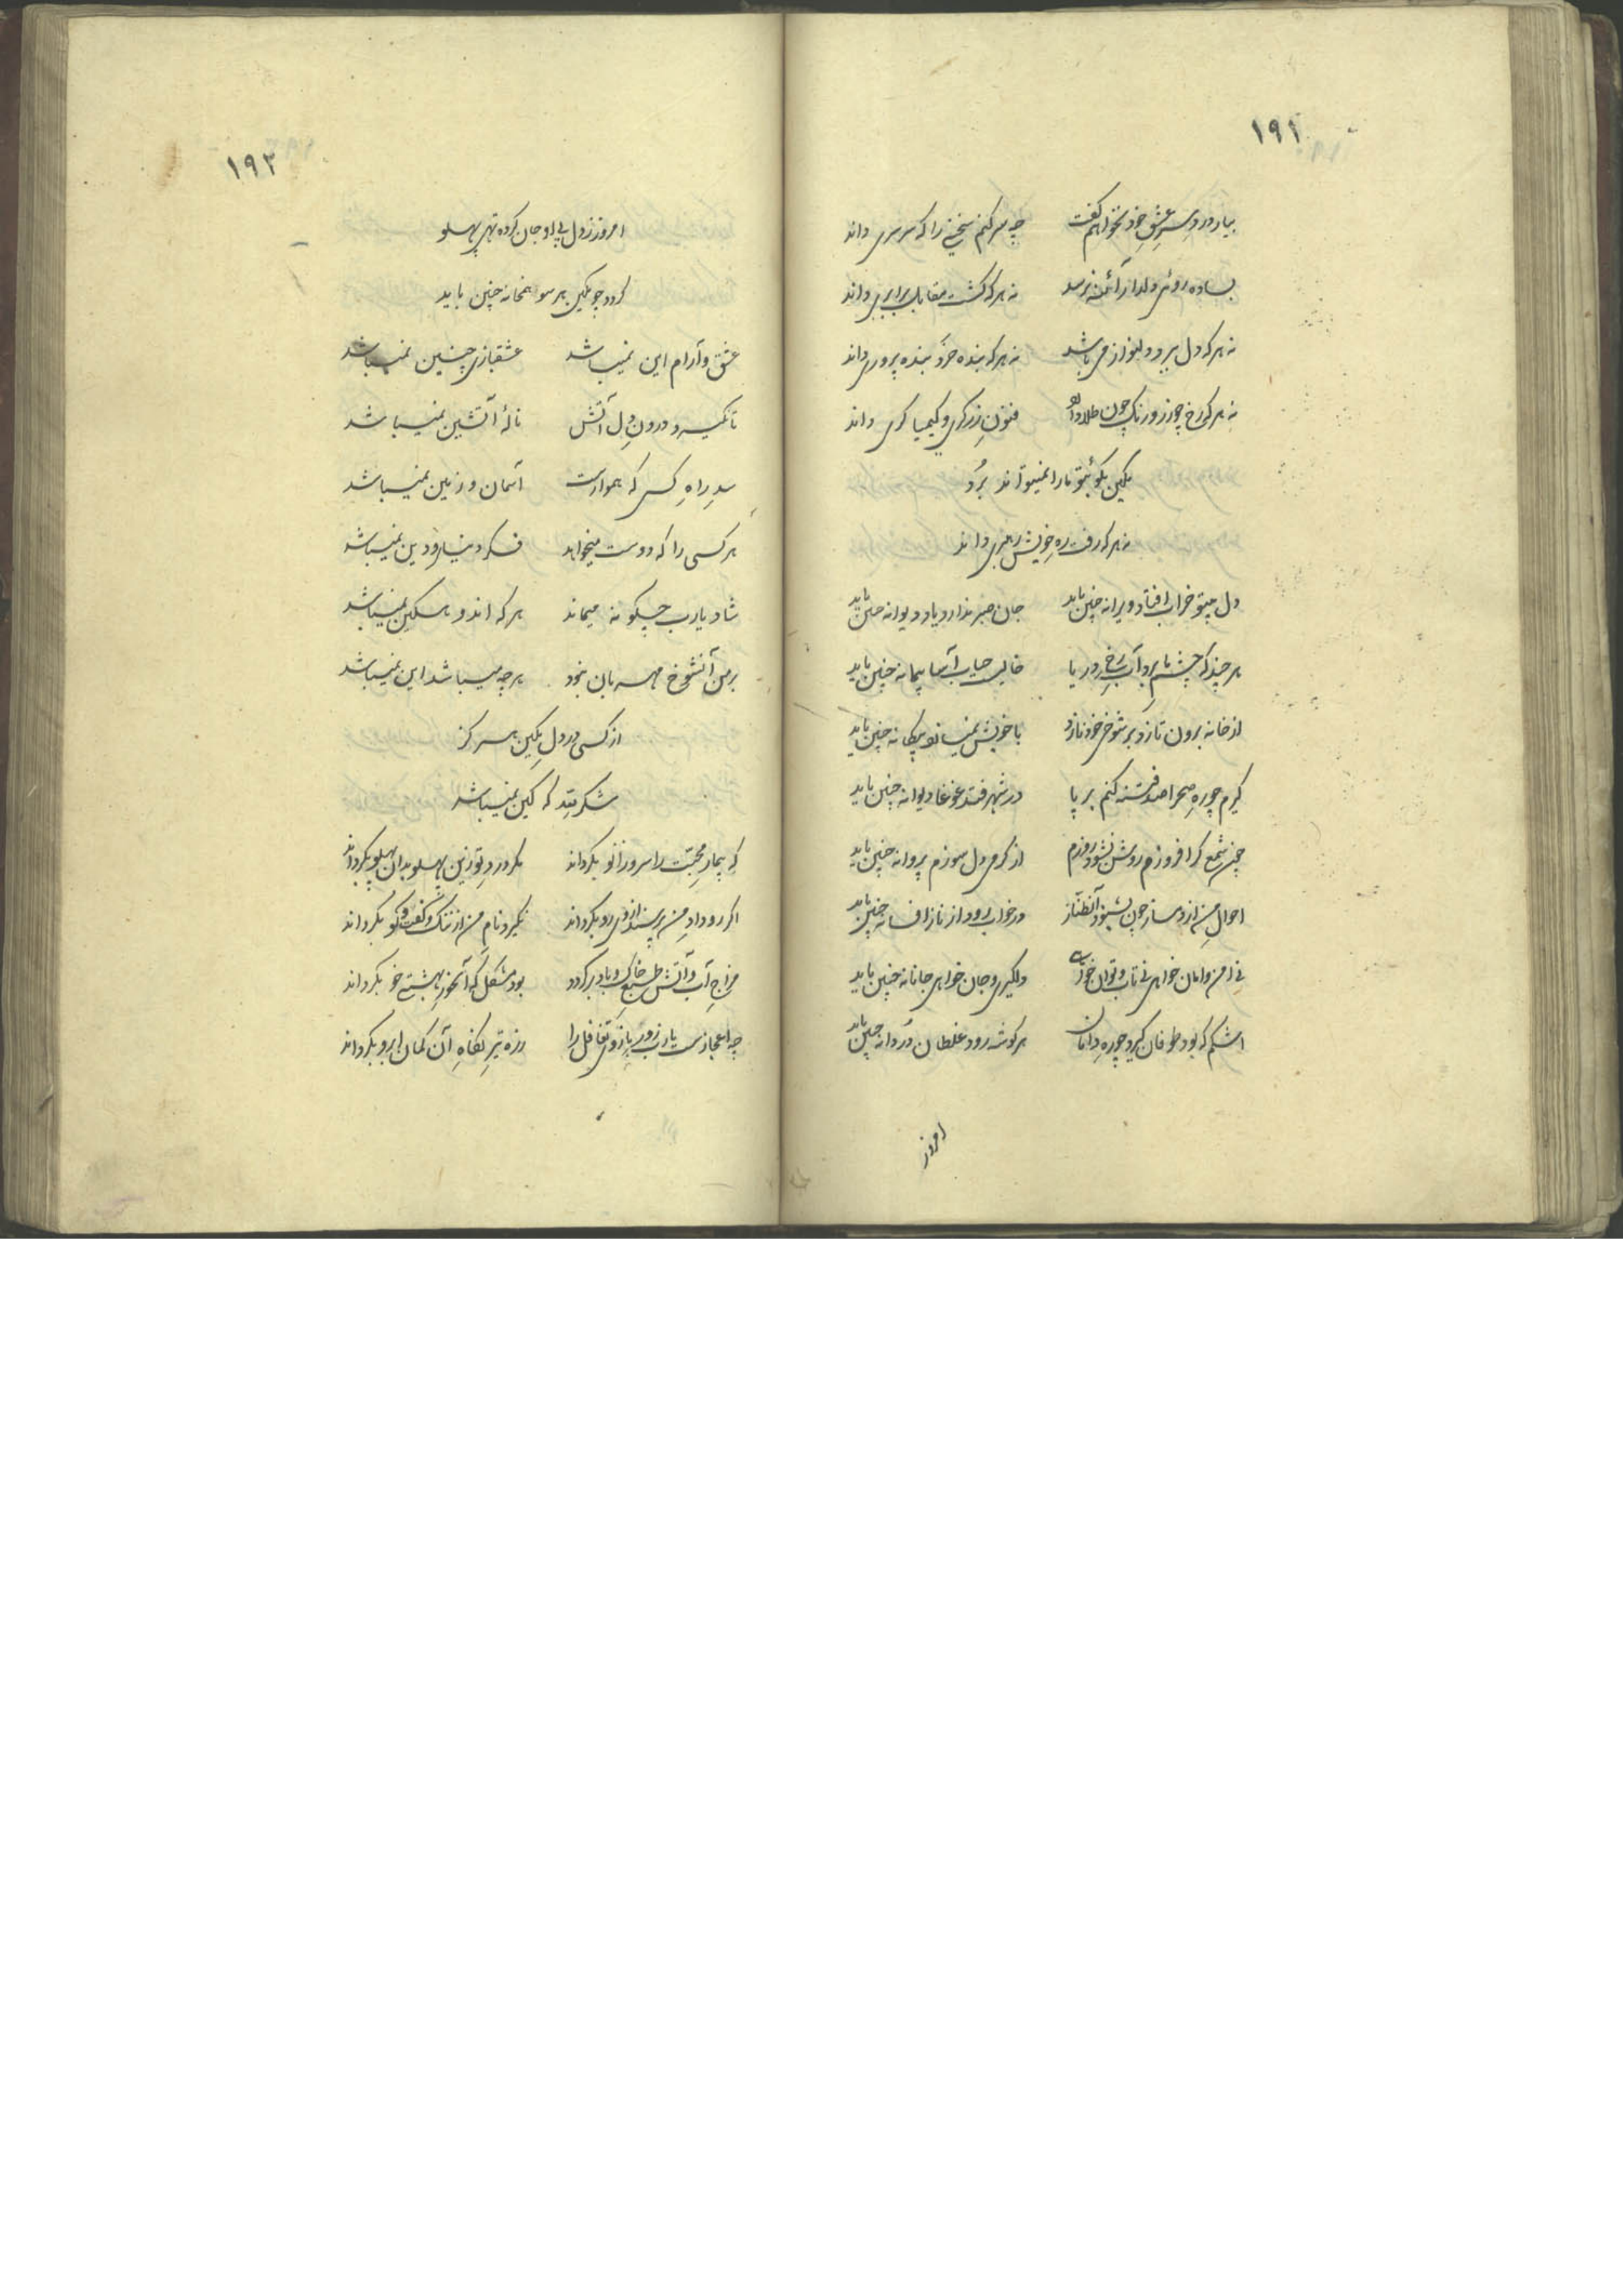 ۱۹۱
بیار درد و سر عشق خود نخواهم گفت چه سر کنم سخنی را که سرسری داند
بساده روئی دلدار آئنه نرسد نه هر که گشت مقابل برابری داند
نه هر که دل ببرد دلنواز می باشد نه هر که بنده خرد بنده پروری داند
نه هر که رخ چو زر و رنگ چون طلا دارد فنون زرگری و کیمیاگری داند
یکین بکوی تو ما را نمیتواند برد
نه هر که رفت ره خویش رهبری داند
دل بیتو خراب افتاد ویرانه چنین باید جان صبر ندارد یاد دیوانه چنین باید
هر چند که چشم ما برد آب رخ دریا خالیست حباب آسا پیمانه چنین باید
از خانه برون نازد بر شوخی خود نازد با خویش نمیسازد بیگانه چنین باید
گیرم چو ره صحرا صد فتنه کنم بر پا در شهر فتد غوغا دیوانه چنین باید
من شمع گر افروزم روشن نشود روزم از گرمی دل سوزم پروانه چنین باید
احوال من از دمساز چون بشنود آن طناز در خواب رود از ناز افسانه چنین باید
نی امن و امان خواهی نی تاب و توان خواهی دلگیری و جان خواهی جانانه چنین باید
اشکم که بود طوفان گیرد چو ره دامان هر گوشه رود غلطان دردانه چنین باید
امروز
۱۹۲
امروز ز دل بی او جان کرده تهی پهلو
گردد چو یکین هر سو همخانه چنین باید
عشق و آرام این نمیباشد عشقبازی چنین نمیباشد
تا نگیرد درون دل آتش نالهٔ آتشین نمیباشد
سد راه کسی که هموارست آسمان و زمین نمیباشد
هر کسی را که دوست میخواهد فکر دنیا و دین نمیباشد
شاد یارب چگونه میماند هر که اندوهگین نمیباشد
بر من آنشوخ مهربان نبود هر چه میباشد این نمیباشد
از کسی در دل یکین هرگز
شکر لله که کین نمیباشد
که بیمار محبت را سر از زانو بگرداند مگر درد تو زین پهلو بدان پهلو بگرداند
اگر روداد من پرسند از وی رو بگرداند نگیرد نام من از ننگ و گفت و گو بگرداند
مزاج آب و آتش طبع خاک و باد برگردد بود مشکل که آنحور بهشتی خو بگرداند
چه اعجازست یارب زور بازوی تغافل را ز ره تیر نگاه آن کمان ابرو بگرداند